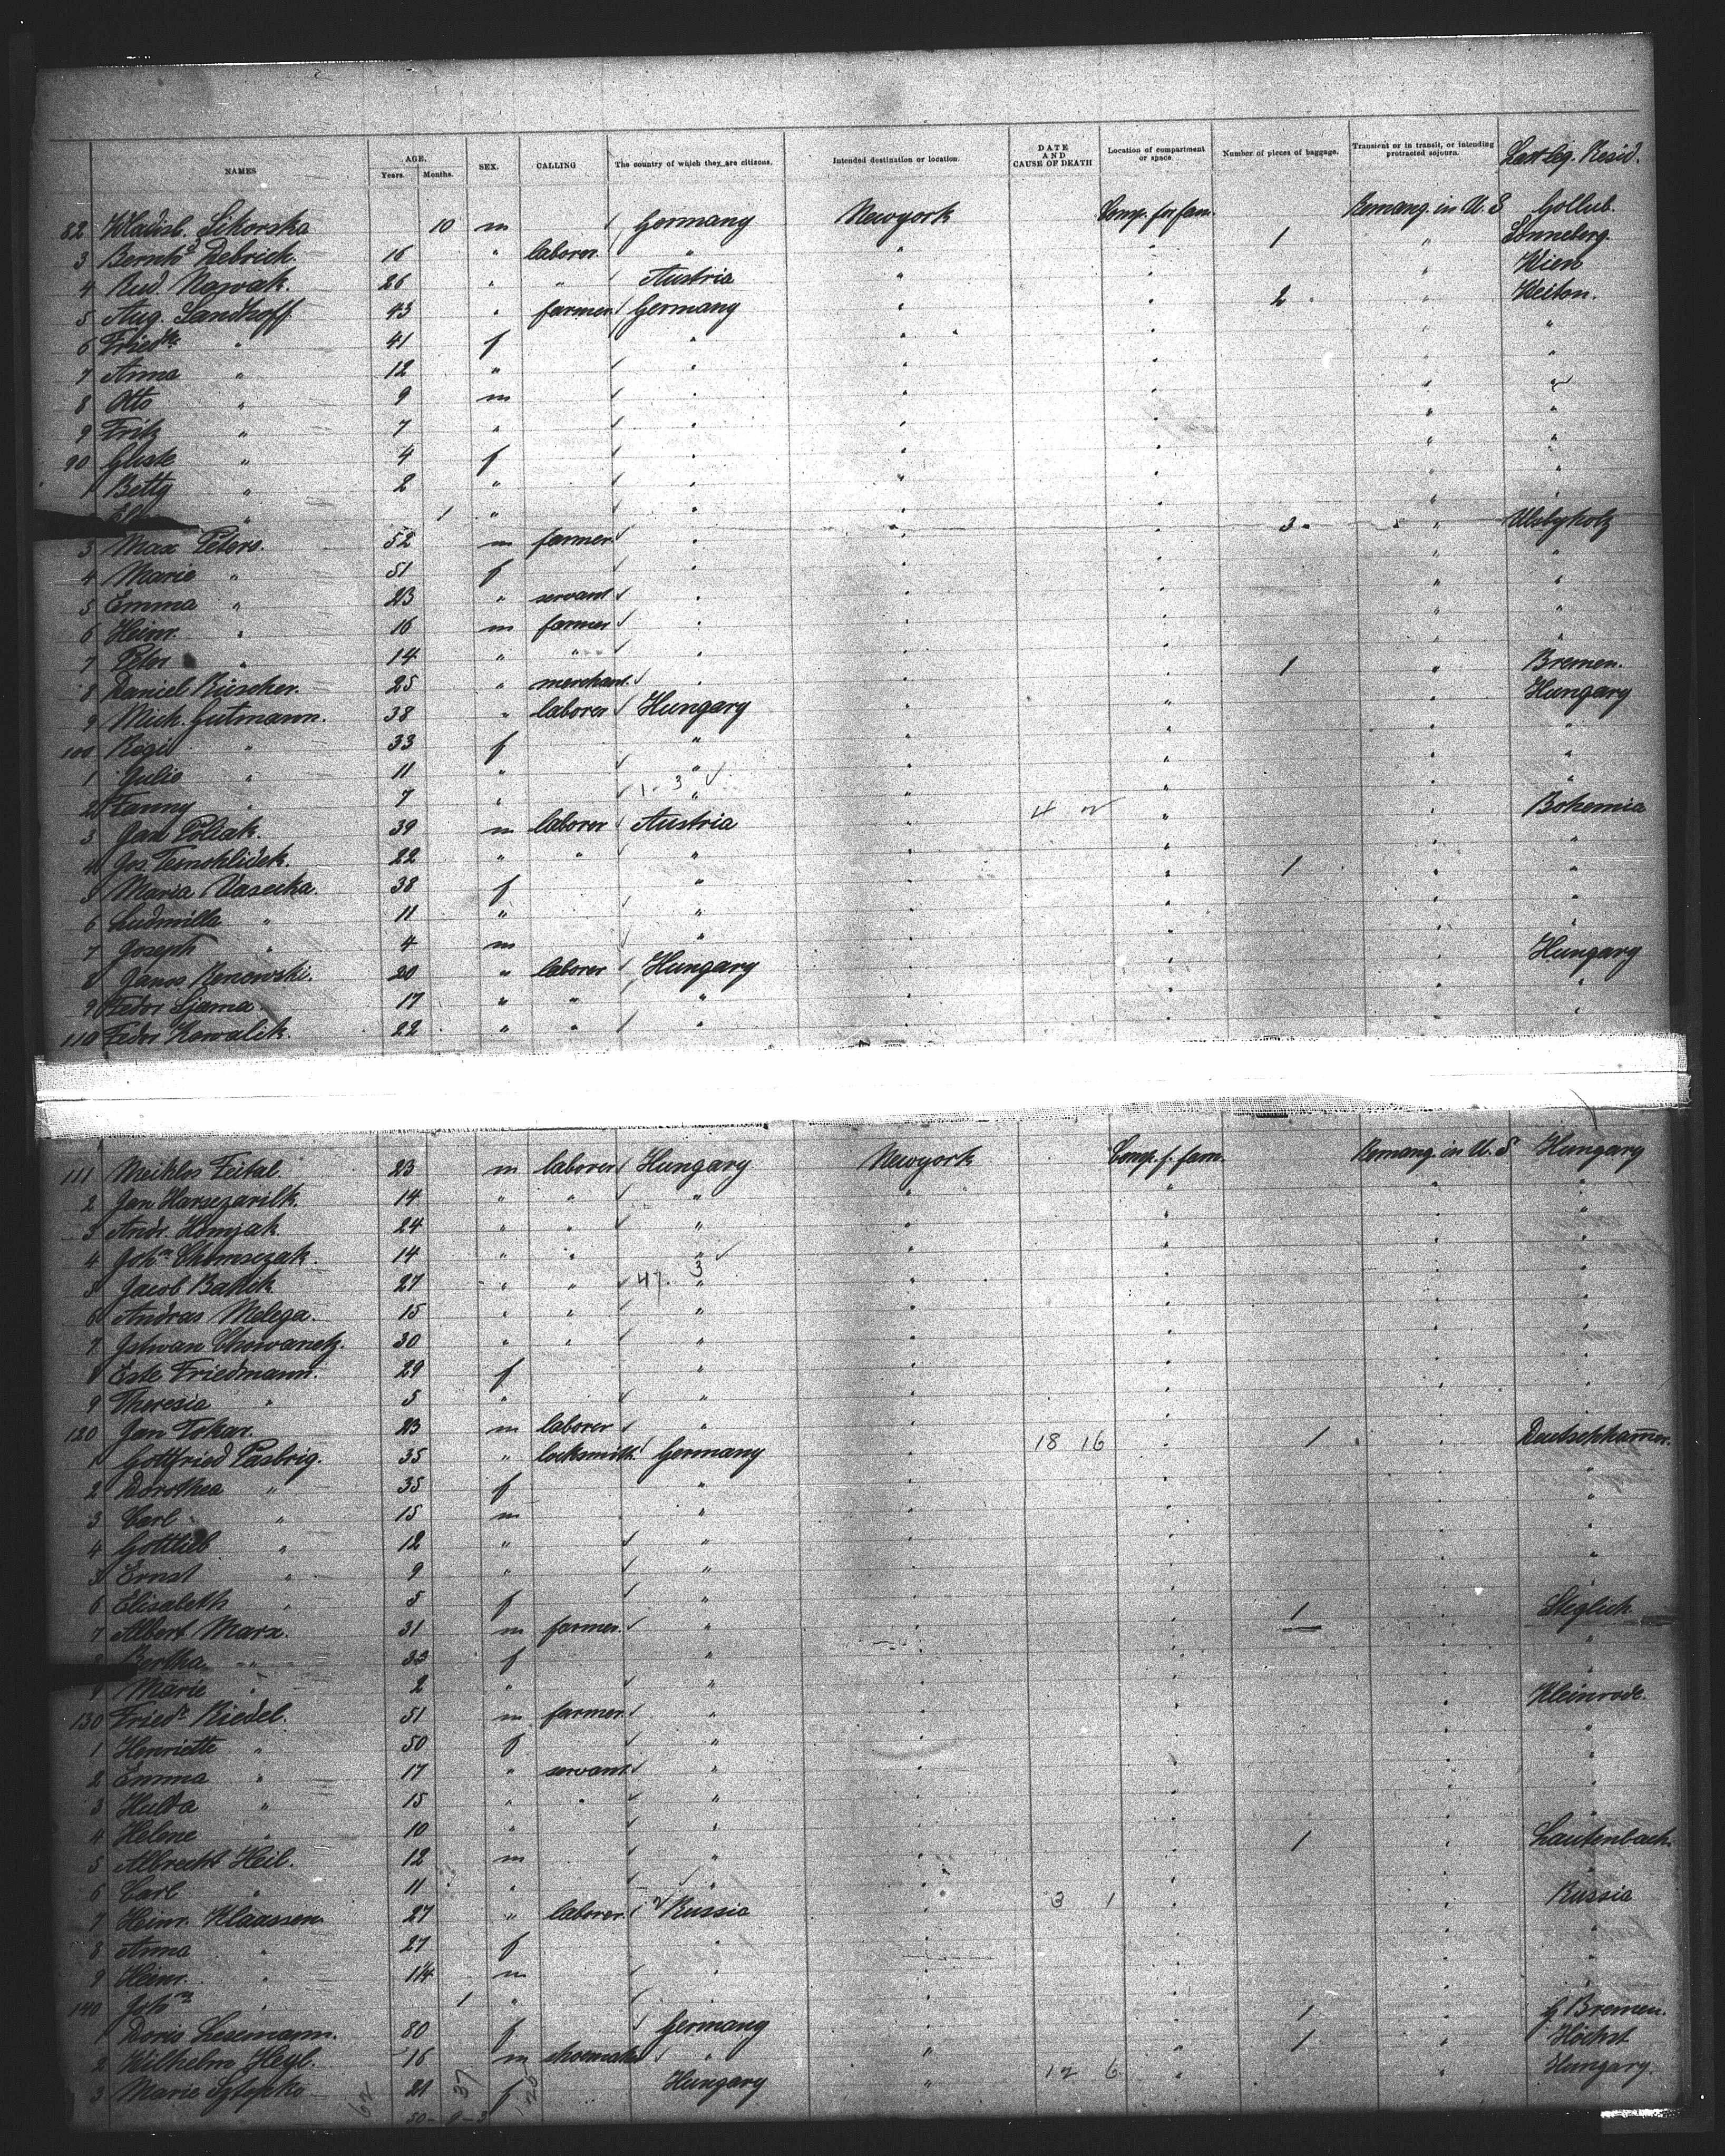 NAMES AGE. Years. Months. SEX. CALLING The country of which they are citizens. Intended destination or location. DATE AND CAUSE OF DEATH Location of compartment or space Number of pieces of baggage. Transient or in transit, or intending protracted sojourn. Last leg. Resid.
82 Wladisl. Sikorska 10 m Germany Newyork Comp. for fam. Remang. in U. S Gollub.
3 Bernhd Debrich. 16 " laborer " " " 1 " Sonneberg.
4 Rud. Nowak. 26 " " Austria " " " Wien
5 Aug. Sandhoff 43 " farmer Germany " " 2 " Welton.
6 Friedke " 41 f " " " " "
7 Anna " 12 " " " " " "
8 Otto " 9 m " " " " "
9 Fritz " 7 " " " " " "
90 " 4 f " " " " "
1 Betty " 2 " " " " " "
" 1 " " " " " "
3 Max Peters. 52 m farmer " " " 3 " Ulsbyholz
4 Marie " 51 f " " " " "
5 Emma " 23 " servant " " " " "
6 Heinr. " 16 m farmer " " " " "
7 Peter " 14 " " " " " " "
8 Daniel Rüscher. 25 " merchant. " " " 1 " Bremen.
9 Mich. Gutmann. 38 " laborer Hungary " " " Hungary
100 Regi " 33 f " " " " "
1 Julie " 11 " " " " " "
2 Fanny " 7 " 1. 3 " " " " "
3 Jan Poliak. 39 m laborer Austria " 4 2 " " Bohemia
4 Jos. 22 " " " " " " "
5 Maria Vasecka. 38 f " " " 1 " "
6 Ludmilla " 11 " " " " " "
7 Joseph " 4 m " " " " "
8 Janos Renowski. 20 " laborer Hungary " " " Hungary
9 Fedor Sjama 17 " " " " " " "
110 Fedor Kowalik. 22 " " " " " " "
111 Meiklos Feital. 23 m laborer Hungary Newyork Comp. f. fam. Remang. in U. S Hungary
2 Jan 14 " " " " " " "
3 Andr. Homjak 24 " " " " " " "
4 John 14 " " " " " " "
5 Jacob 27 " " 47. 3 " " " " "
6 Andras Melega. 15 " " " " " " "
7 Istwan Chowanetz. 30 " " " " " " "
8 Este Friedmann. 29 f " " " " "
9 Theresia " 5 " " " " " "
120 Jan Tokar. 23 m laborer " " " " "
1 Gottfried Pasbrig. 35 " locksmith Germany " 18 16 " 1 " Deutschhamer.
2 Dorothea " 35 f " " " " "
3 Carl " 15 m " " " " "
4 Gottlieb " 12 " " " " " "
5 Ernst " 9 " " " " " "
6 Elisabeth " 5 f " " " " "
7 Albert Marx. 31 m farmer. " " " 1 " Steglich
8 Bertha " 33 f " " " " "
9 Marie " 2 " " " " " "
130 Friedr. Riedel. 51 m farmer. " " " " Kleinrode.
1 Henriette " 50 f " " " " "
2 Emma " 17 " servant " " " " "
3 Hulda " 15 " " " " " " "
4 Helene " 10 " " " " " "
5 Albrecht Heil. 12 m " " " 1 " Lautenbach.
6 Carl " 11 " " " " " "
7 Heinr. Klaassen 27 " laborer. Russia " 3 1 " " Russia
8 Anna " 27 f " " " " "
9 Heinr. " 11/4 m " " " " "
140 Johs " 1 " " " " " "
1 Doris Lesemann. 80 f Germany " " 1 " Bremen.
2 Wilhelm Heyl. 16 m shoemaker " " " 1 " Höchst
3 Marie 21 f Hungary " 12 6 " " Hungary.
62 37